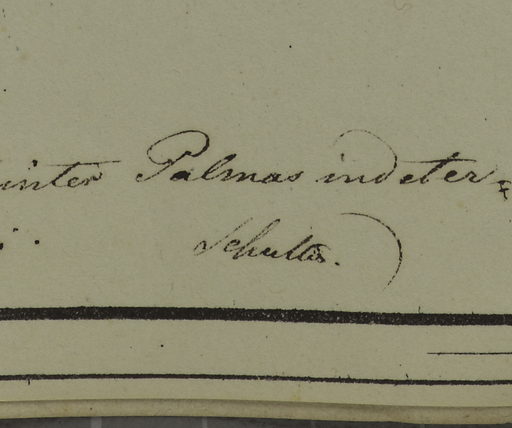 inter Palmas indeter=
Schultes.)